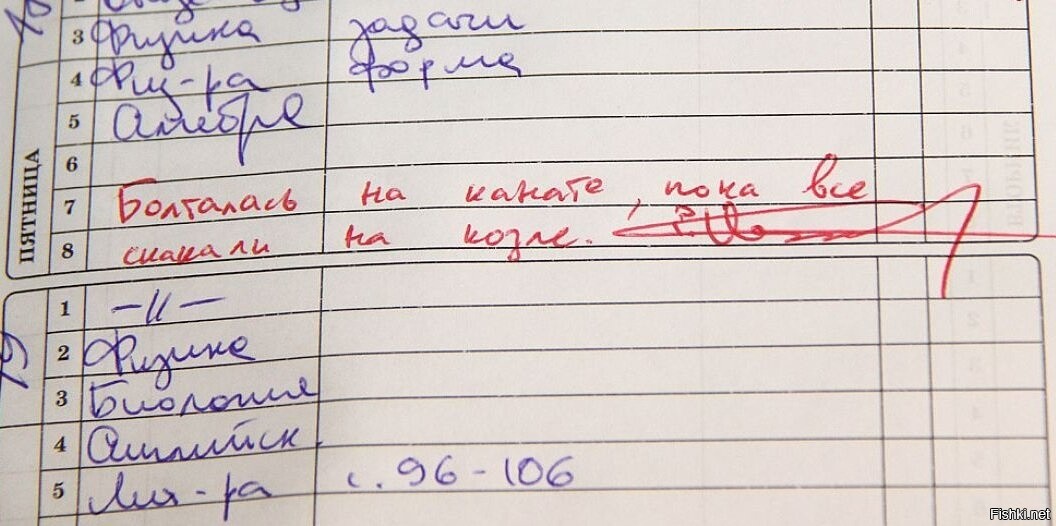 3 Физика задачи
4 Физ-ра форма
5 Алгебра
6
7 Болталась на канате, пока все
8 скакали на козле.
ПЯТНИЦА
1 —॥—
2 Физика
3 Биология
4 Английск
5 Лит-ра с. 96-106
Fishki.net